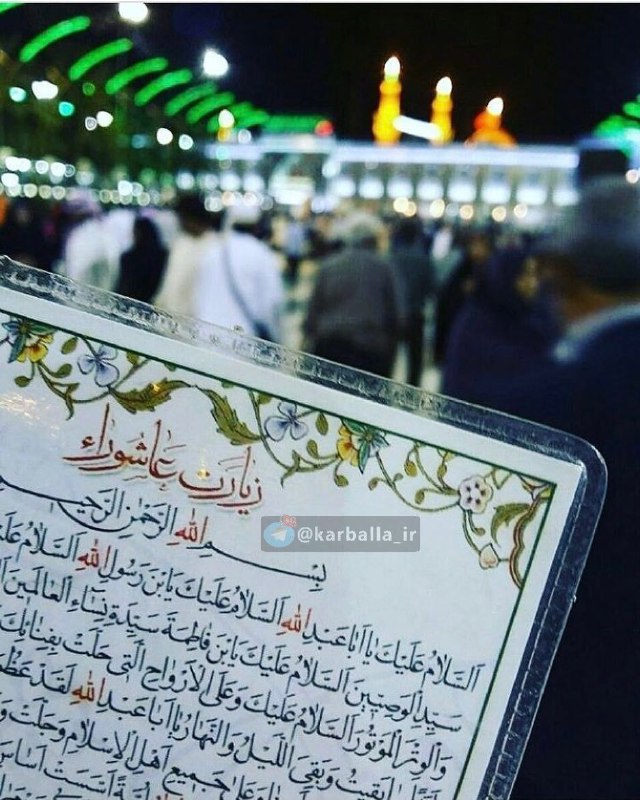 زیارت عاشوراء
بِسْمِ اللهِ الرَّحْمٰنِ الرَّحیمِ
@karballa_ir
اَلسَّلامُ عَلَيْكَ يٰا اَبٰا عَبْدِ اللهِ اَلسَّلامُ عَلَيْكَ يَابْنَ رَسُولِ اللهِ اَلسَّلامُ
سَيِّدِ الْوَصِيّينَ اَلسَّلامُ عَلَيْكَ يَابْنَ فٰاطِمَةَ سَيِّدَةِ نِسٰاءِ الْعٰالَمينَ
وَالْوِتْرَ الْمَوْتُورَ اَلسَّلامُ عَلَيْكَ وَعَلَى الْاَرْوٰاحِ الَّتى حَلَّتْ بِفِنٰائِكَ
بَقيتُ وَبَقِىَ اللَّيْلُ وَالنَّهٰارُ يٰا اَبٰا عَبْدِ اللهِ لَقَدْ
جَميعِ اَهْلِ الْاِسْلامِ وَجَلَّتْ
اُمَّةً اَسَّسَتْ اَسٰاسَ